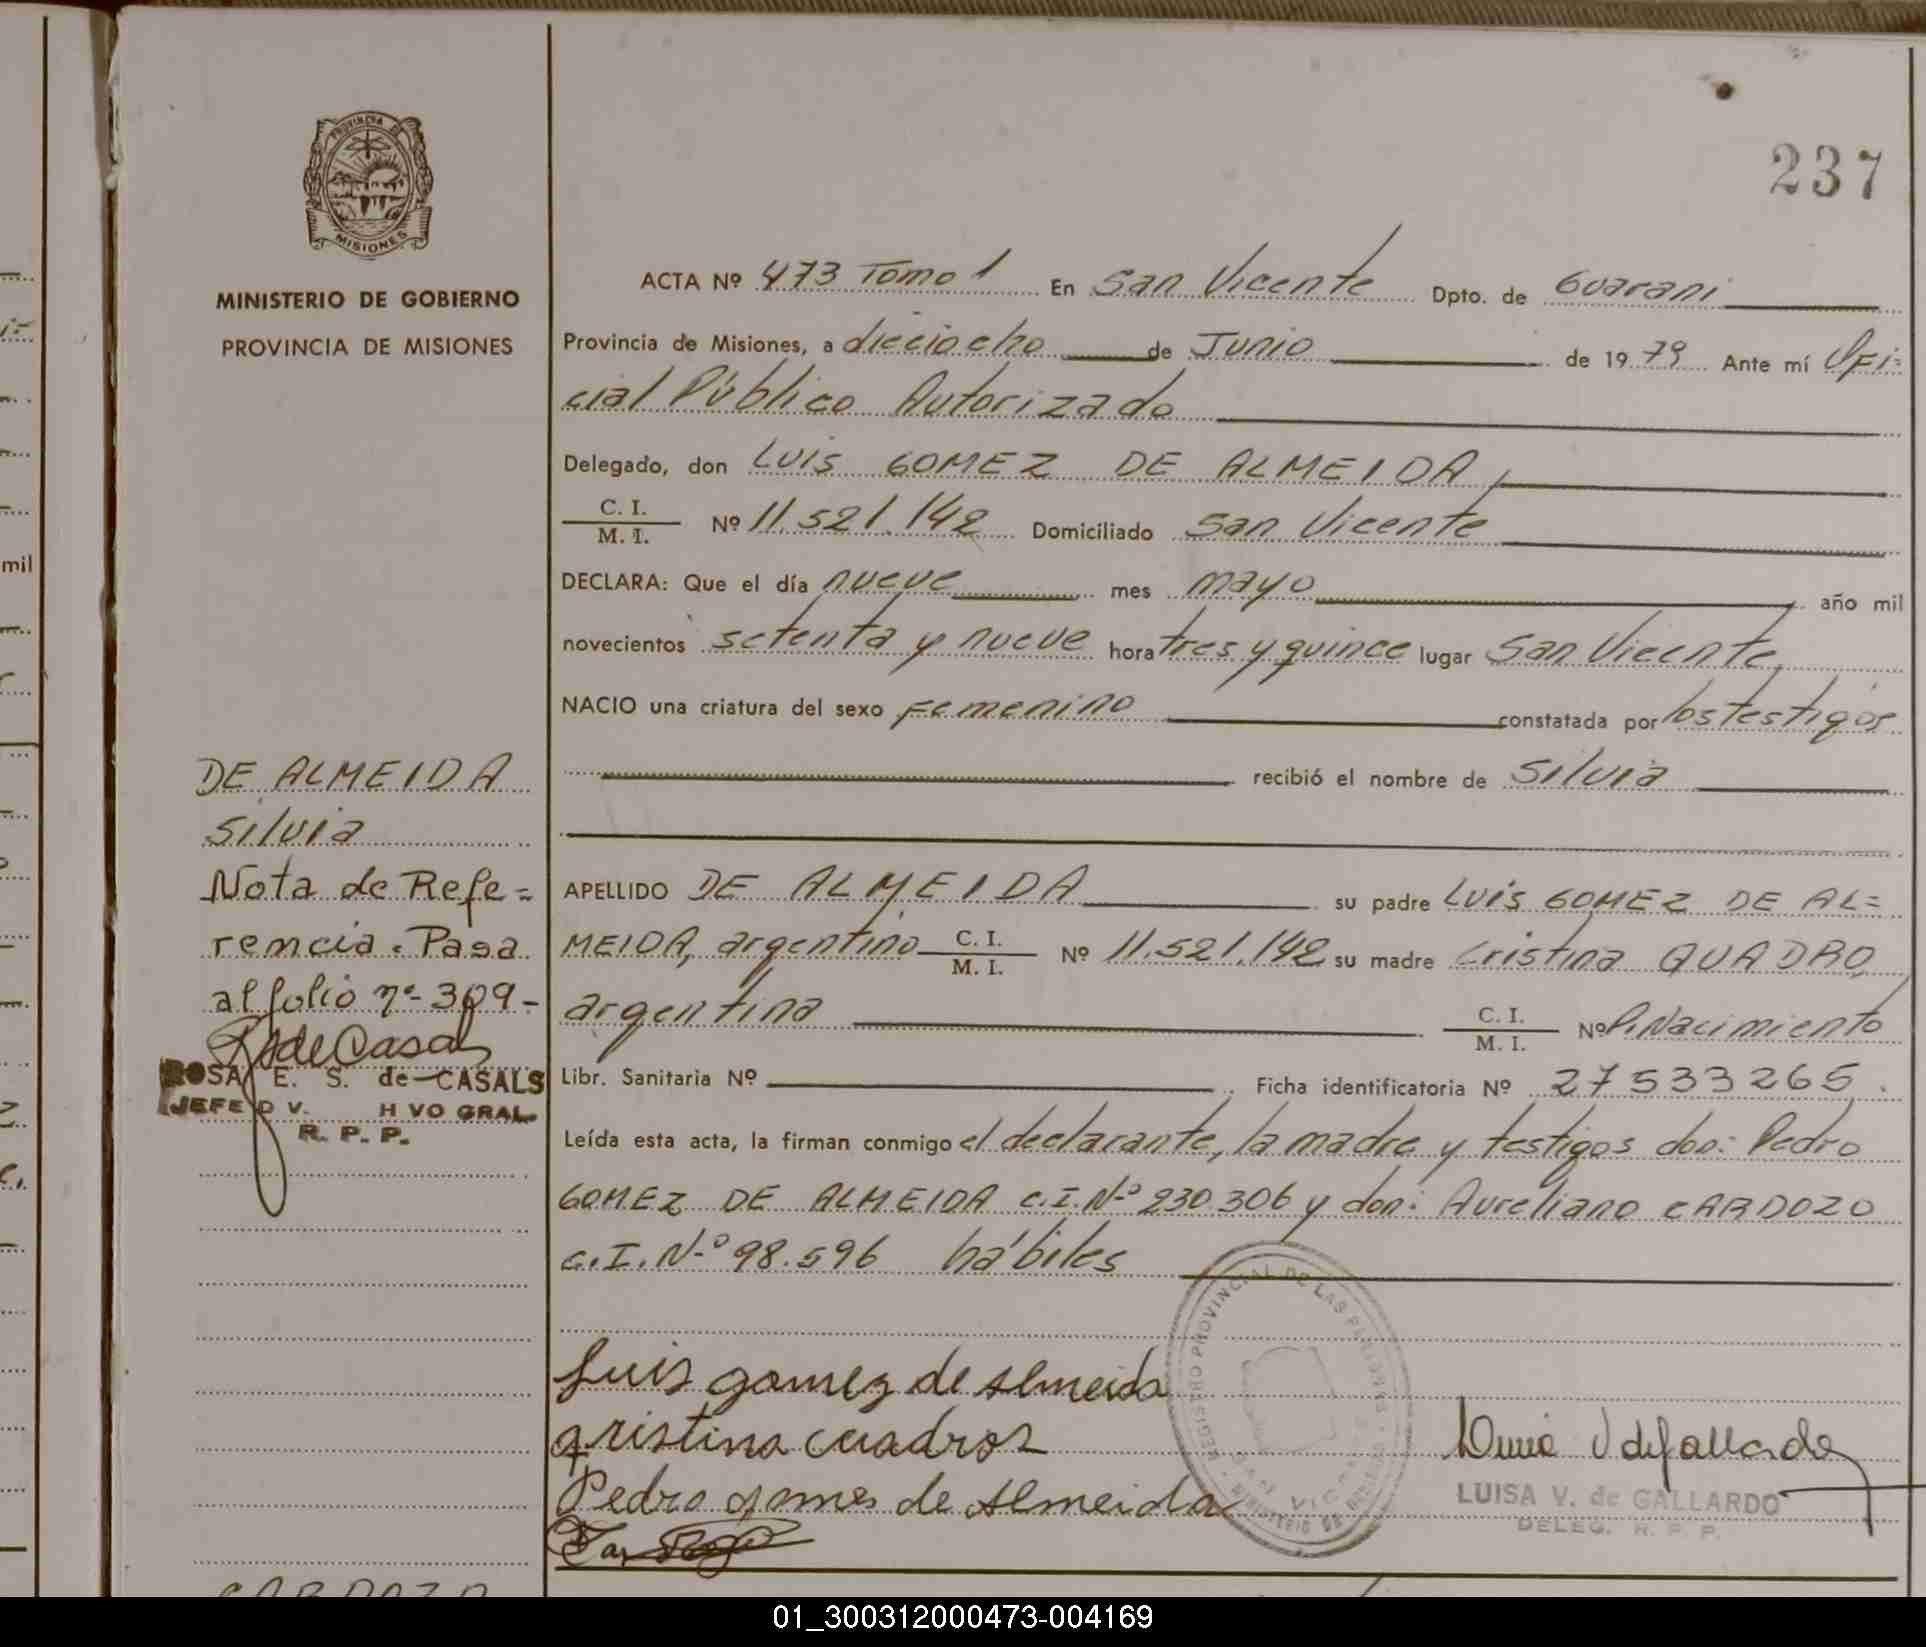 237
PROVINCIA DE
MISIONES
MINISTERIO DE GOBIERNO
PROVINCIA DE MISIONES
ACTA Nº 473 Tomo 1 En San Vicente Dpto. de Guarani
Provincia de Misiones, a dieciocho de Junio de 1979 Ante mí Ofi=
cial Público Autorizado
Delegado, don LUIS GOMEZ DE ALMEIDA,
C. I.
M. I. Nº 11.521.142 Domiciliado San Vicente
DECLARA: Que el día nueve mes mayo año mil
novecientos setenta y nueve hora tres y quince lugar San Vicente,
NACIO una criatura del sexo Femenino constatada por los testigos
recibió el nombre de Silvia
APELLIDO DE ALMEIDA su padre LUIS GOMEZ DE AL=
MEIDA, argentino C. I.
M. I. Nº 11.521.142 su madre Cristina QUADRO,
argentina C. I.
M. I. Nº P.Nacimiento
Libr. Sanitaria Nº Ficha identificatoria Nº 27533265.
Leída esta acta, la firman conmigo el declarante, la madre y testigos don: Pedro
GOMEZ DE ALMEIDA C.I.Nº 230.306 y don: Aureliano CARDOZO
C.I.Nº 98.596 hábiles
DE ALMEIDA
Silvia
Nota de Refe=
rencia. Pasa
al folio nº 309-
ROSA E. S. de CASALS
JEFE D V. H VO GRAL.
R. P. P.
Luis gomez de almeida
qristina cuadros
Pedro gomes de almeida
REGISTRO PROVINCIAL DE LAS PERSONAS
MINISTERIO DE
LUISA V. de GALLARDO
DELEG. R. P. P.
CARDOZO
mil
01_300312000473-004169